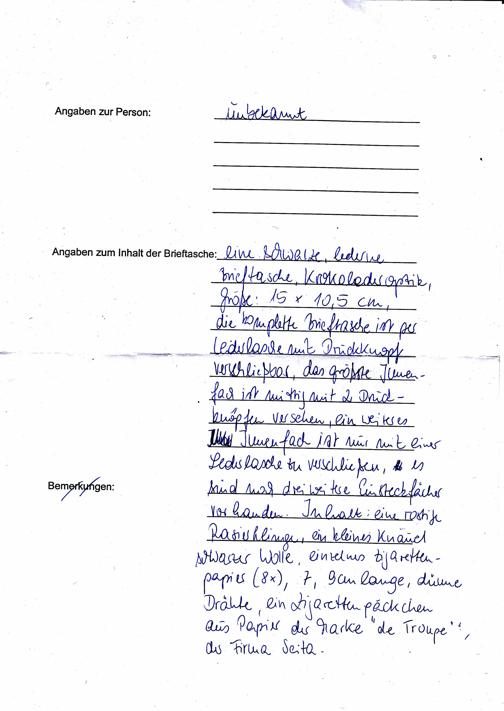 Angaben zur Person: unbekannt
Angaben zum Inhalt der Brieftasche: eine schwarze, lederne
Brieftasche, Krokolederoptik,
Größe: 15 x 10,5 cm,
die komplette Brieftasche ist per
Lederlasche mit Druckknopf
verschließbar, das größte Innen-
fach ist mittig mit 2 Druck-
knöpfen versehen, ein weiteres
Innenfach ist nur mit einer
Lederlasche zu verschließen, es
Bemerkungen: sind noch drei weitere Einsteckfächer
vorhanden. Inhalt: eine rostige
Rasierklinge, ein kleines Knäuel
schwarzer Wolle, einzelnes Zigaretten-
papier (8x), 7, 9cm lange, dünne
Drähte, ein Zigarettenpäckchen
aus Papier der Marke "de Troupe",
der Firma Seita.